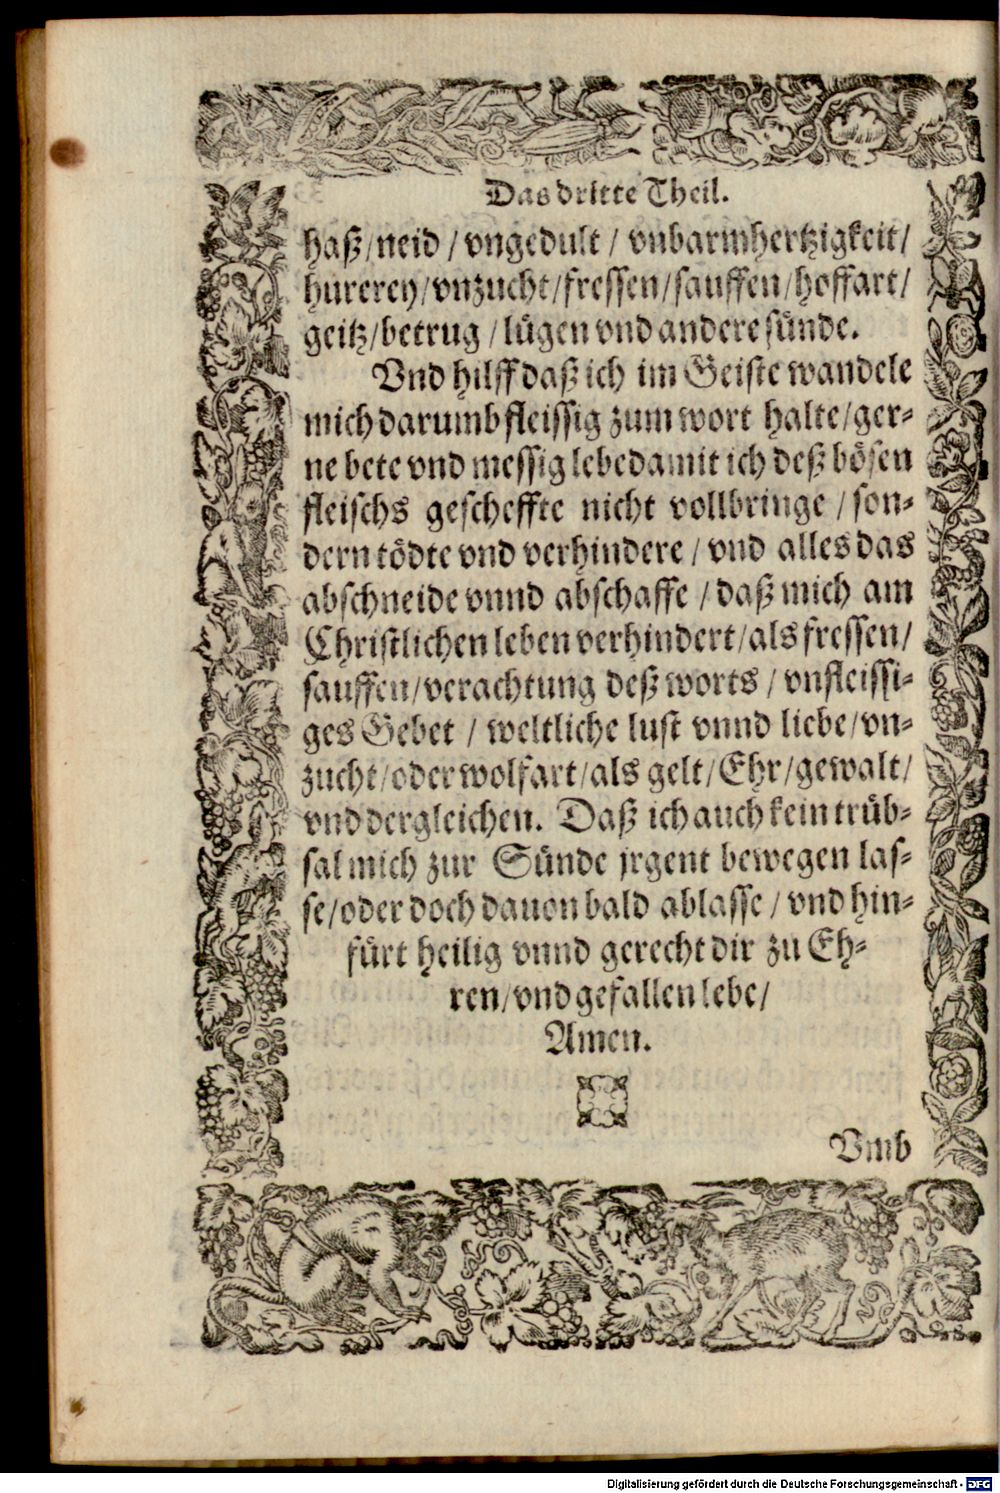 Das dritte Theil.
haß/neid / vngedult / vnbarmhertzigkeit/
hurerey/vnzucht/fressen/sauffen/hoffart/
geitz/betrug /lügen vnd andere sünde.
Vnd hilff daß ich im Geiste wandele
mich darumb fleissig zum wort halte/ger-
ne bete vnd messig lebe damit ich deß bösen
fleischs gescheffte nicht vollbringe / son-
dern tödte vnd verhindere / vnd alles das
abschneide vnnd abschaffe / daß mich am
Christlichen leben verhindert/als fressen/
sauffen/verachtung deß worts / vnfleissi-
ges Gebet / weltliche lust vnnd liebe/vn-
zucht/oder wolfart/als gelt/Ehr/gewalt/
vnd dergleichen. Daß ich auch kein trüb-
sal mich zur Sünde jrgent bewegen las-
se/oder doch dauon bald ablasse / vnd hin-
fürt heilig vnnd gerecht dir zu Eh-
ren/vnd gefallen lebe/
Amen.
Vmb
Digitalisierung gefördert durch die Deutsche Forschungsgemeinschaft - DFG